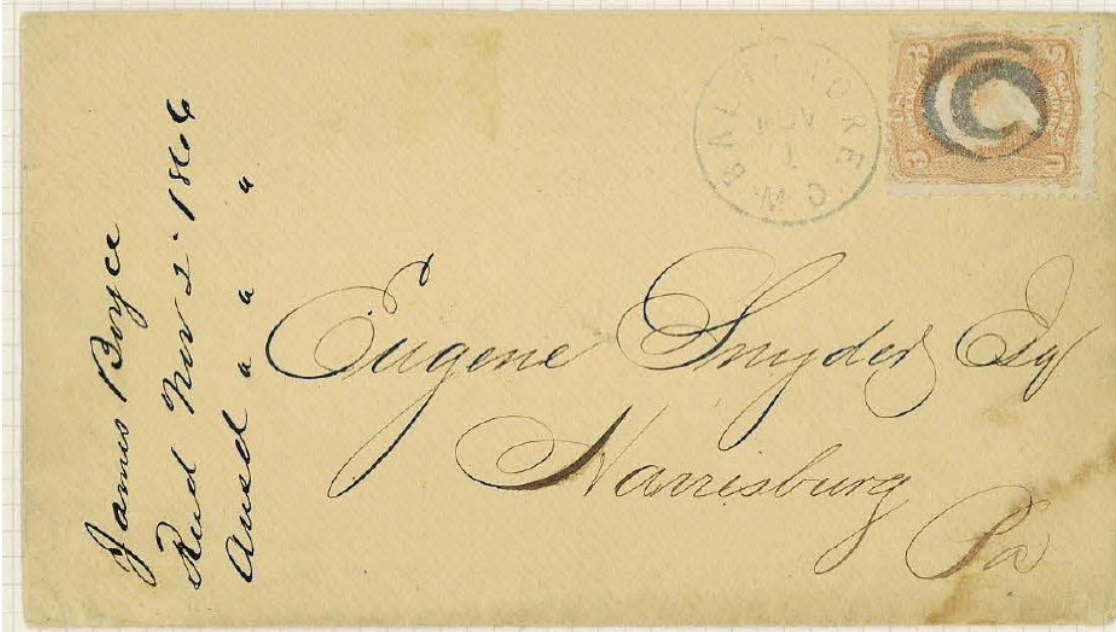 James Boyce
Recd Nov 2. 1866
Ansd " " "
BALTIMORE MD.
NOV
1
3 3
U S
Eugene Snyder Esq
Harrisburg
Pa